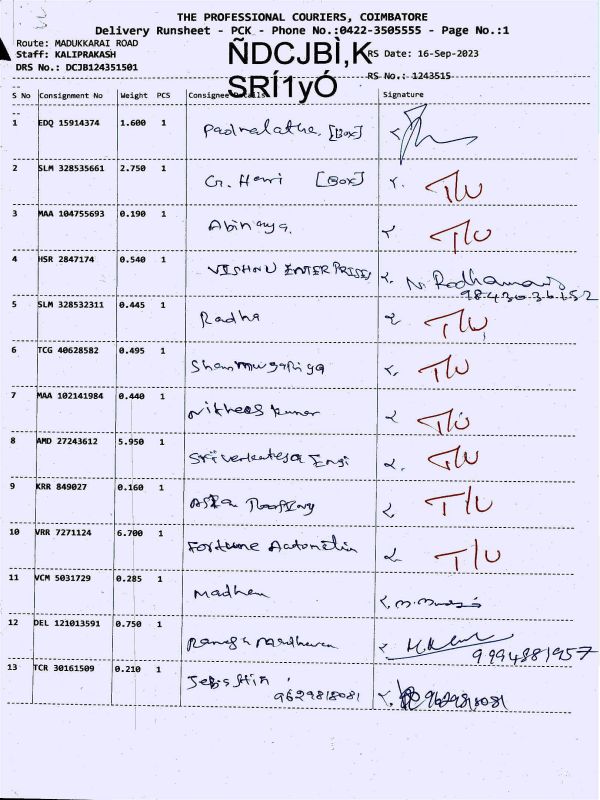 THE PROFESSIONAL COURIERS, COIMBATORE
Delivery Runsheet - PCK - Phone No.:0422-3505555 - Page No.:1
Route: MADUKKARAI ROAD
Staff: KALIPRAKASH
RS Date: 16-Sep-2023
DRS No.: DCJB124351501
ÑDCJBÌ,K
SRÍ1yÓ
RS No.: 1243515
S No Consignment No Weight PCS Consignee Details Signature
1 EDQ 15914374 1.600 1 [Box]
2 SLM 328535661 2.750 1 G. Hari [Box] T/U
3 MAA 104755693 0.190 1 Abinaya. T/U
4 HSR 2847174 0.540 1 VISHNU ENTERPRISES N.
5 SLM 328532311 0.445 1 Radha T/U
6 TCG 40628582 0.495 1 Shanmugapriya T/U
7 MAA 102141984 0.440 1 Nithees kumar T/U
8 AMD 27243612 5.950 1 Sri Venkatesa Engi T/U
9 KRR 849027 0.160 1 T/U
10 VRR 7271124 6.700 1 Fortune T/U
11 VCM 5031729 0.285 1
12 DEL 121013591 0.750 1
9994881957
13 TCR 30161509 0.210 1
9629818081 9629818081